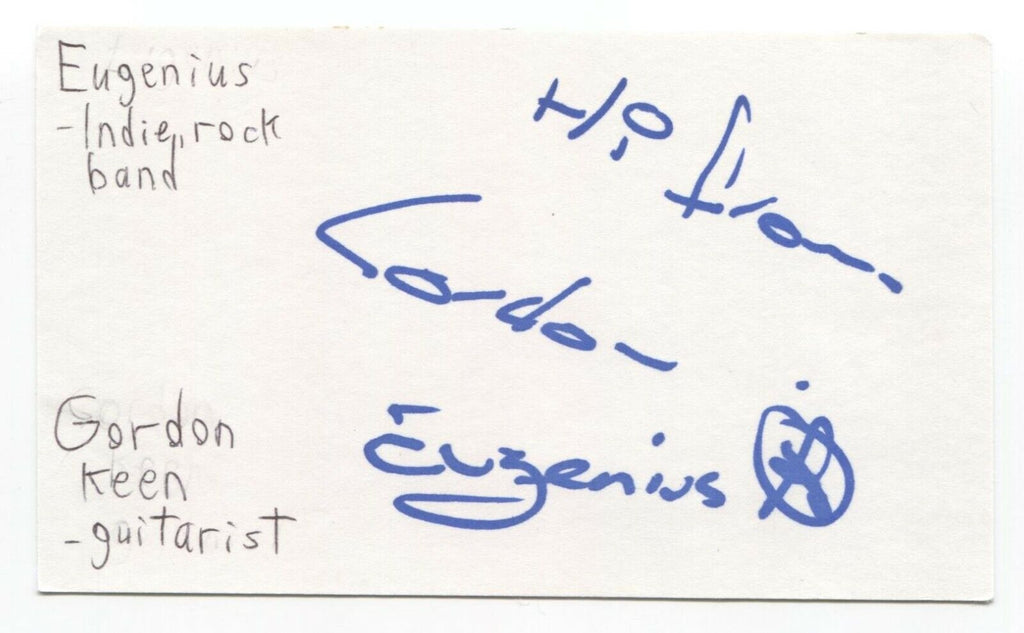 Eugenius
- Indie, rock
band
Hi from
Gordon
Eugenius
Gordon
Keen
- guitarist